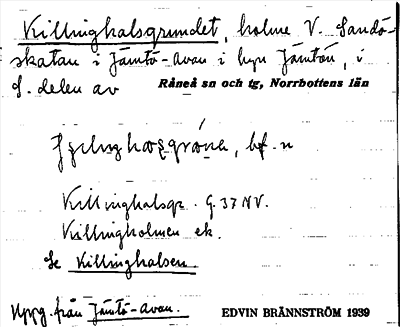 Killinghalsgrundet, holme V. Sandö-
skatan i Jämtö-avan i byn Jämtön, i
S. delen av Råneå sn och tg, Norrbottens län
bf. n
Killinghalsgr. G. 37 NV.
Killingholmen ek.
Se Killinghalsen.
Uppg. från Jämtö-avan. EDVIN BRÄNNSTRÖM 1939